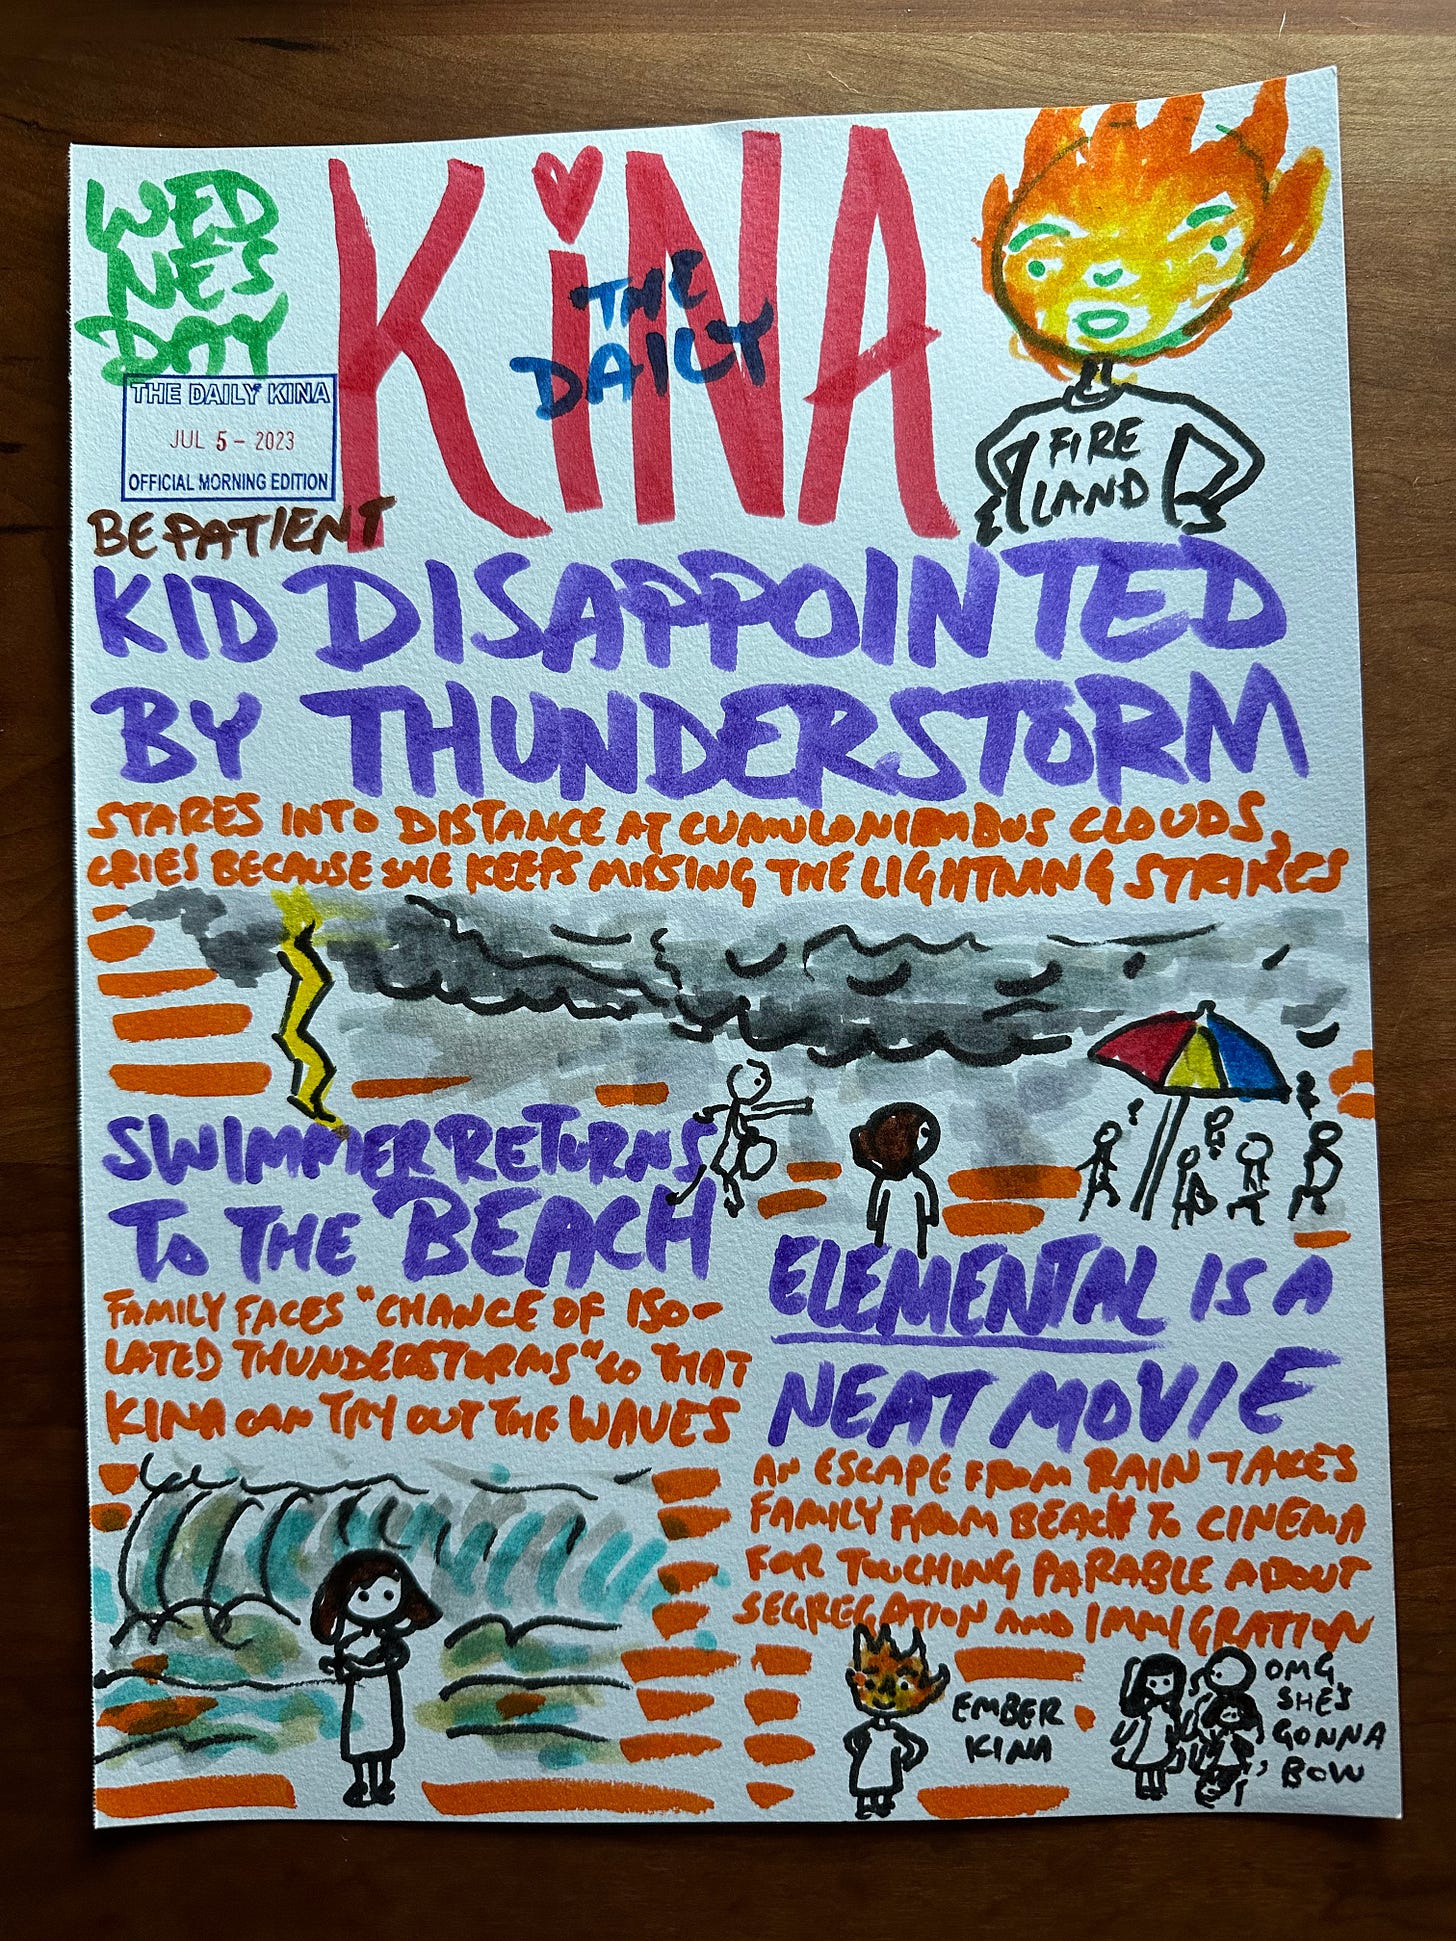 WED
NES
DAY
KiNA
THE
DAILY
THE DAILY KINA
JUL 5 - 2023
OFFICIAL MORNING EDITION
FIRE
LAND
BE PATIENT
KID DISAPPOINTED
BY THUNDERSTORM
STARES INTO DISTANCE AT CUMULONIMBUS CLOUDS,
CRIES BECAUSE SHE KEEPS MISSING THE LIGHTNING STRIKES
SWIMMER RETURNS
TO THE BEACH
FAMILY FACES "CHANCE OF ISO-
LATED THUNDERSTORMS" SO THAT
KINA CAN TRY OUT THE WAVES
ELEMENTAL IS A
NEAT MOVIE
AN ESCAPE FROM RAIN TAKES
FAMILY FROM BEACH TO CINEMA
FOR TOUCHING PARABLE ABOUT
SEGREGATION AND IMMIGRATION
EMBER
KINA
OMG
SHE'S
GONNA
BOW